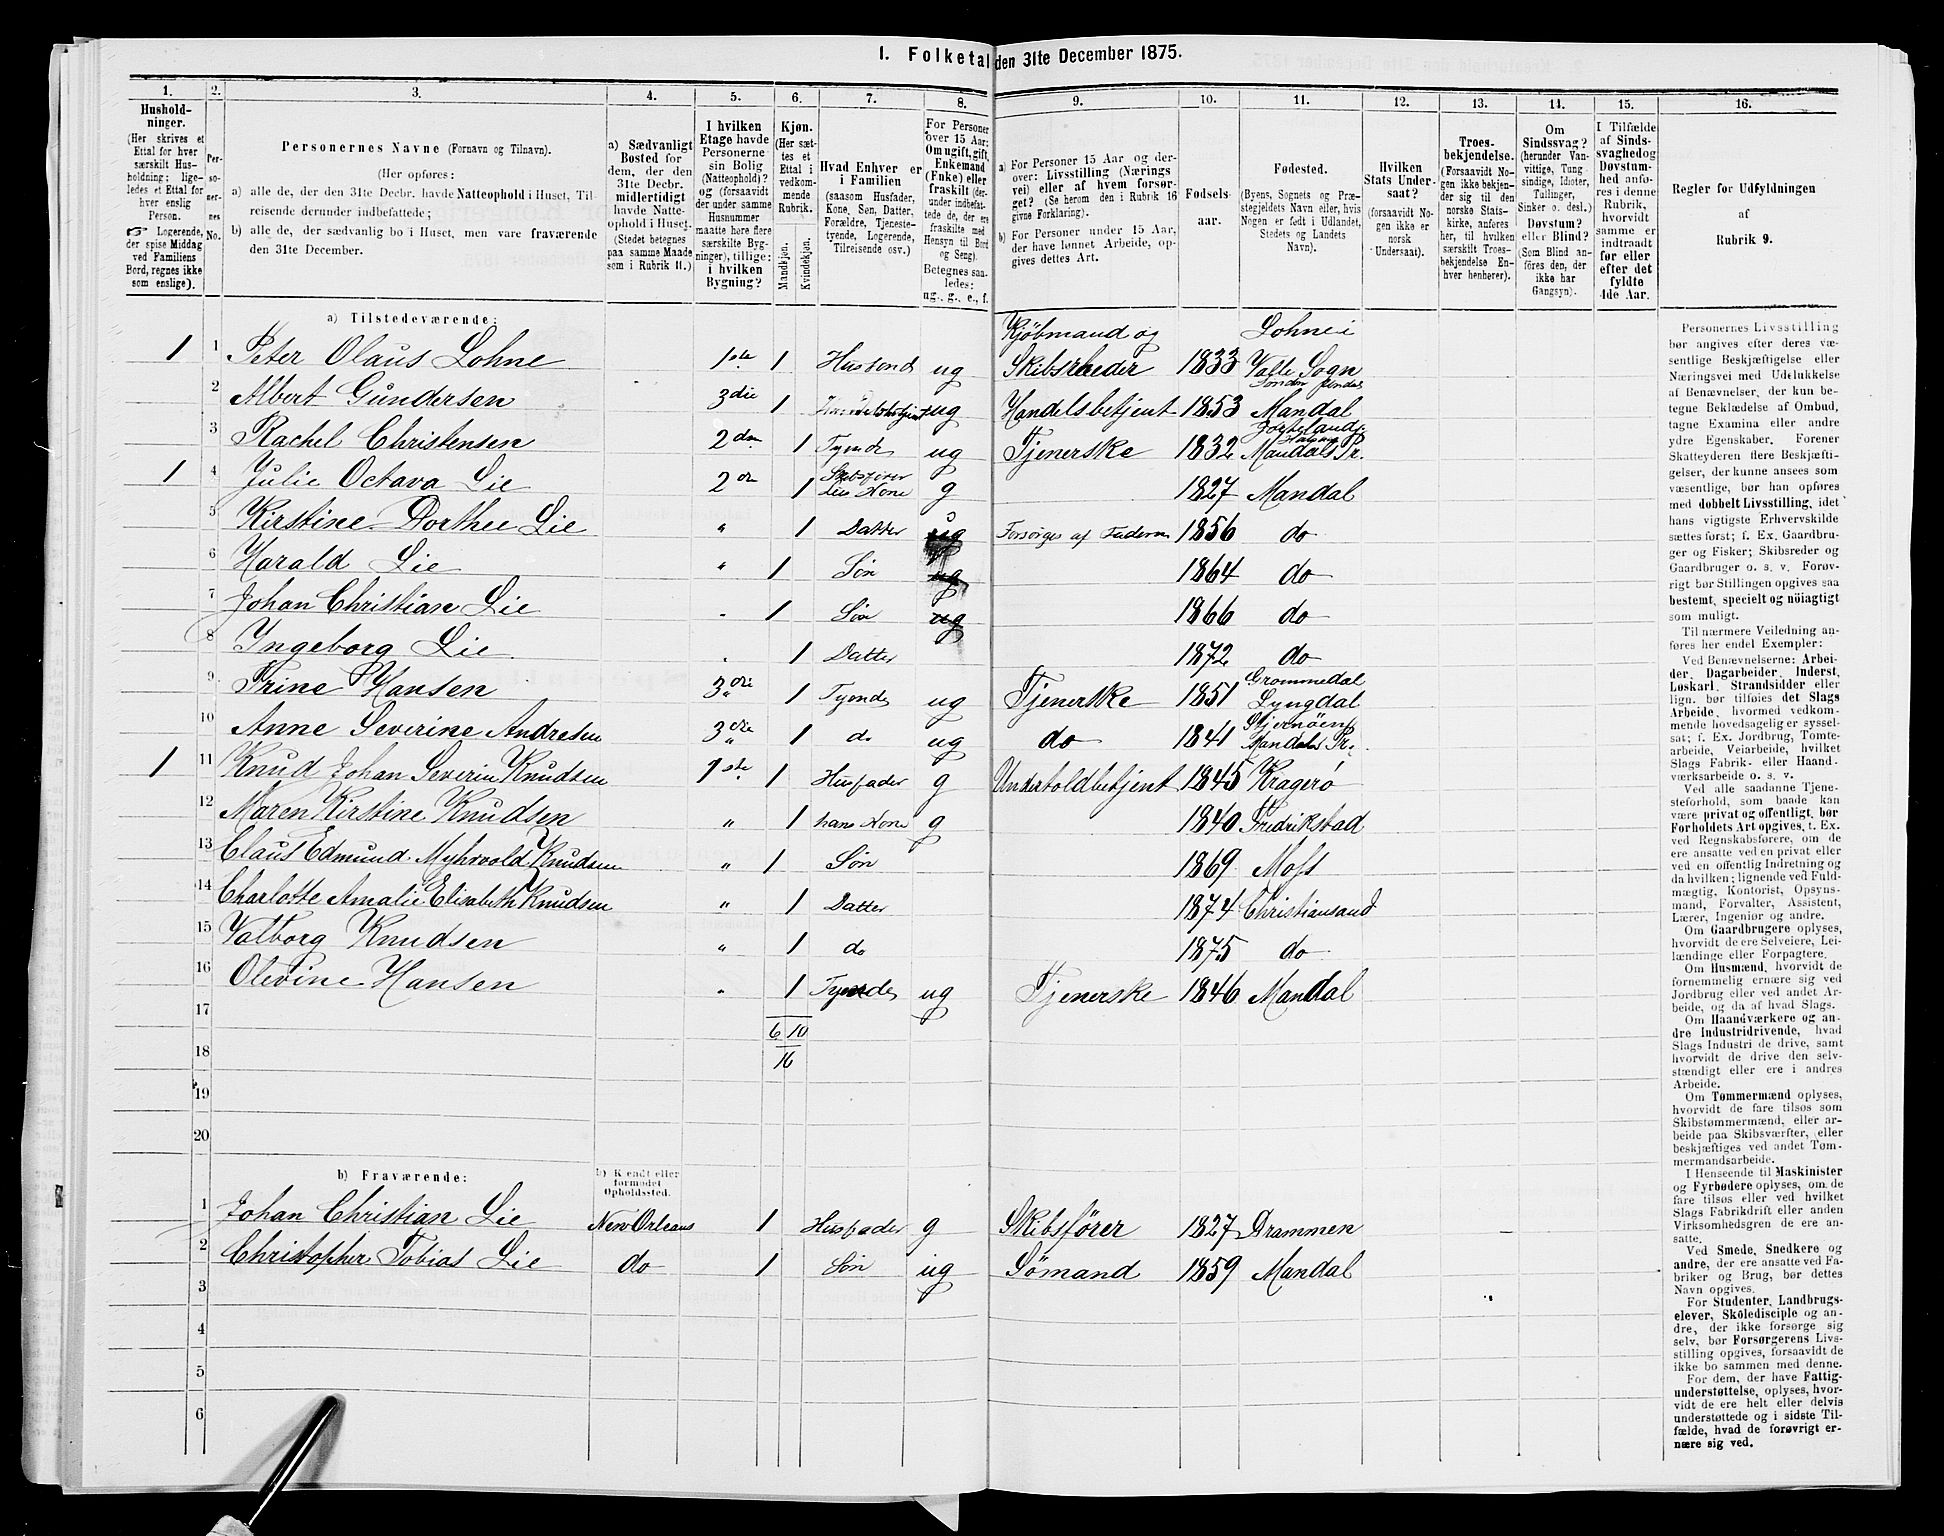 1. Folketal den 31te December 1875.
1.
2.
3.
4.
5.
6.
7.
8.
9.
10.
11.
12.
13.
14.
15.
16.
Hushold-
ninger.
(Her skrives et
Ettal for hver
særskilt Hus-
holdning; lige-
ledes et Ettal for
hver enslig
Person.
☞ Logerende,
der spise Middag
ved Familiens
Bord, regnes ikke
som enslige).
Per-
so-
ner-
nes
No.
Personernes Navne (Fornavn og Tilnavn).
(Her opføres:
a) alle de, der den 31te Decbr. havde Natteophold i Huset, Til-
reisende derunder indbefattede;
b) alle de, der sædvanlig bo i Huset, men vare fraværende
den 31te December.
a) Sædvanligt
Bosted for
dem, der den
31te Decbr.
midlertidigt
havde Natte-
ophold i Huset.
(Stedet betegnes
paa samme Maade
som i Rubrik 11.)
I hvilken
Etage havde
Personerne
sin Bolig
(Natteophold)?
og (forsaavidt
der under samme
Husnummer
maatte høre flere
særskilte Byg-
ninger), tillige:
i hvilken
Bygning?
Kjøn.
(Her sæt-
tes et
Ettal i
vedkom-
mende
Rubrik.
Mandkjøn.
Kvindekjøn.
Hvad Enhver er
i Familien
(saasom Husfader,
Kone, Søn, Datter,
Forældre, Tjeneste-
tyende, Logerende,
Tilreisende osv.)
For Personer
over 15 Aar:
Om ugift, gift,
Enkemand
(Enke) eller
fraskilt (der-
under indbefat-
tede de, der ere
fraskilte med
Hensyn til Bord
og Seng).
Betegnes saa-
ledes:
ug., g., e., f.
a) For Personer 15 Aar og der-
over: Livsstilling (Nærings
vei) eller af hvem forsør-
get? (Se herom den i Rubrik 16
givne Forklaring.)
b) For Personer under 15 Aar,
der have lønnet Arbeide, op-
gives dettes Art.
Fødsels-
aar.
Fødested.
(Byens, Sognets og Præ-
stegjeldets Navn eller, hvis
Nogen er født i Udlandet,
Stedets og Landets
Navn).
Hvilken
Stats Under-
saat?
(forsaavidt No-
gen ikke er
norsk
Undersaat).
Troes-
bekjendelse.
(Forsaavidt No-
gen ikke bekjen-
der sig til den
norske Stats-
kirke, anføres
her, til hvilken
særskilt Troes-
bekjendelse En-
hver henhører).
Om
Sindssvag?
(herunder Van-
vittige, Tung-
sindige, Idioter,
Tullinger,
Sinker o. desl.)
Døvstum?
eller Blind?
(Som Blind an-
føres den, der
ikke har
Gangsyn).
I Tilfælde
af Sinds-
svaghed og
Døvstum-
hed anfø-
res i denne
Rubrik,
hvorvidt
samme er
indtraadt
før eller
efter det
fyldte
4de Aar.
Regler for Udfyldningen
af
Rubrik 9.
a) Tilstedeværende:
Kjöbmand og Lohne i
1 1 Peter Olaus Lohne 1ste 1 Husfond ug Skibsrheder 1833 Valle Sogn
2 Albert Gundersen 3die 1 ug Handelsbetjent 1853 Mandal
3 Rachel Christensen 2den 1 Tyende ug Tjenerske 1832 Mandals Pr.
Skibsfører
1 4 Julie Octava Lie 2den 1 Lies Kone g 1827 Mandal
5 Kirstine Dorthee Lie " 1 Datter ug Forsørges af Faderen 1856 do
6 Harald Lie " 1 Søn ug 1864 do
7 Johan Christian Lie " 1 Søn ug 1866 do
8 Ingeborg Lie " 1 Datter 1872 do
9 Trine Hansen 3die 1 Tyende ug Tjenerske 1851 Grommedal
Lyngdal
10 Anne Severine Andresen 3die 1 do ug do 1841 Skjernöen
Mandals Pr.
1 11 Knud Johan Severin Knudsen 1ste 1 Husfader g Undertoldbetjent 1845 Kragerø
12 Maren Kirstine Knudsen " 1 hans Kone g 1840 Fredrikstad
13 Claus Edmund Myhrvold Knudsen " 1 Søn 1869 Moss
14 Charlotte Amalie Elisabeth Knudsen " 1 Datter 1874 Christiansand
15 Valborg Knudsen " 1 do 1875 do
16 Olevine Hansen " 1 Tyende ug Tjenerske 1846 Mandal
17 6 10
18 16
19
20
b) Fraværende:
b) Kjendt eller
formodet
Opholdssted.
1 Johan Christian Lie New Orleans 1 Husfader g Skibsfører 1827 Drammen
2 Christopher Tobias Lie do 1 Søn ug Sömand 1859 Mandal
3
4
5
6
Personernes Livsstilling
bør angives efter deres væ-
sentlige Beskjæftigelse eller
Næringsvei med Udelukkelse
af Benævnelser, der kun be-
tegne Beklædelse af Ombud,
tagne Examina eller andre
ydre Egenskaber. Forener
Skatteyderen flere Beskjæfti-
gelser, der kunne ansees som
væsentlige, bør han opføres
med dobbelt Livsstilling, idet
hans vigtigste Erhvervskilde
sættes først; f. Ex. Gaardbru-
ger og Fisker; Skibsreder og
Gaardbruger o. s. v. Forøv-
rigt bør Stillingen opgives saa
bestemt, specielt og nöiagtigt
som muligt.
Til nærmere Veiledning an-
føres her endel Exempler:
Ved Benævnelserne: Arbei-
der, Dagarbeider, Inderst,
Løskarl, Strandsidder eller
lign. bør tilføies det Slags
Arbeide, hvormed vedkom-
mende hovedsagelig er syssel-
sat; f. Ex. Jordbrug, Tomte-
arbeide, Veiarbeide, hvilket
Slags Fabrik- eller Haand-
værksarbeide o. s. v.
Ved alle saadanne Tjene-
steforhold, som baade kan
være privat og offentligt, bør
Forholdets Art opgives, t. Ex.
ved Regnskabsførere, om de
ere ansatte ved en privat eller
ved en offentlig Indretning og
da hvilken; lignende ved Fuld-
mægtig, Kontorist, Opsyns-
mand, Forvalter, Assistent,
Lærer, Ingeniør og andre.
Om Gaardbrugere oplyses,
hvorvidt de ere Selveiere, Lei-
lændinge eller Forpagtere.
Om Husmænd, hvorvidt de
fornemmelig ernære sig ved
Jordbrug eller ved andet Ar-
beide, og da af hvad Slags.
Om Haandværkere og an-
dre Industridrivende, hvad
Slags Industri de drive, samt
hvorvidt de drive den selv-
stændigt eller ere i andres
Arbeide.
Om Tømmermænd oplyses,
hvorvidt de fare tilsøs som
Skibstømmermænd, eller ar-
beide paa Skibsværfter, eller
beskjæftiges ved andet Tøm-
mermandsarbeide.
I Henseende til Maskinister
og Fyrbødere oplyses, om de
fare tilsøs eller ved hvilket
Slags Fabrikdrift eller anden
Virksomhedsgren de ere an-
satte.
Ved Smede, Snedkere og
andre, der ere ansatte ved Fa-
briker og Brug, bør dettes
Navn opgives.
For Studenter, Landbrugs-
elever, Skoledisciple og an-
dre, der ikke forsørge sig
selv, bør Forsørgerens Livs-
stilling opgives, forsaavidt de
ikke bo sammen med denne.
For dem, der have Fattig-
understøttelse, oplyses, hvor-
vidt de ere helt eller delvis
understøttede og i sidste Til-
fælde, hvad de forøvrigt er-
nære sig ved.